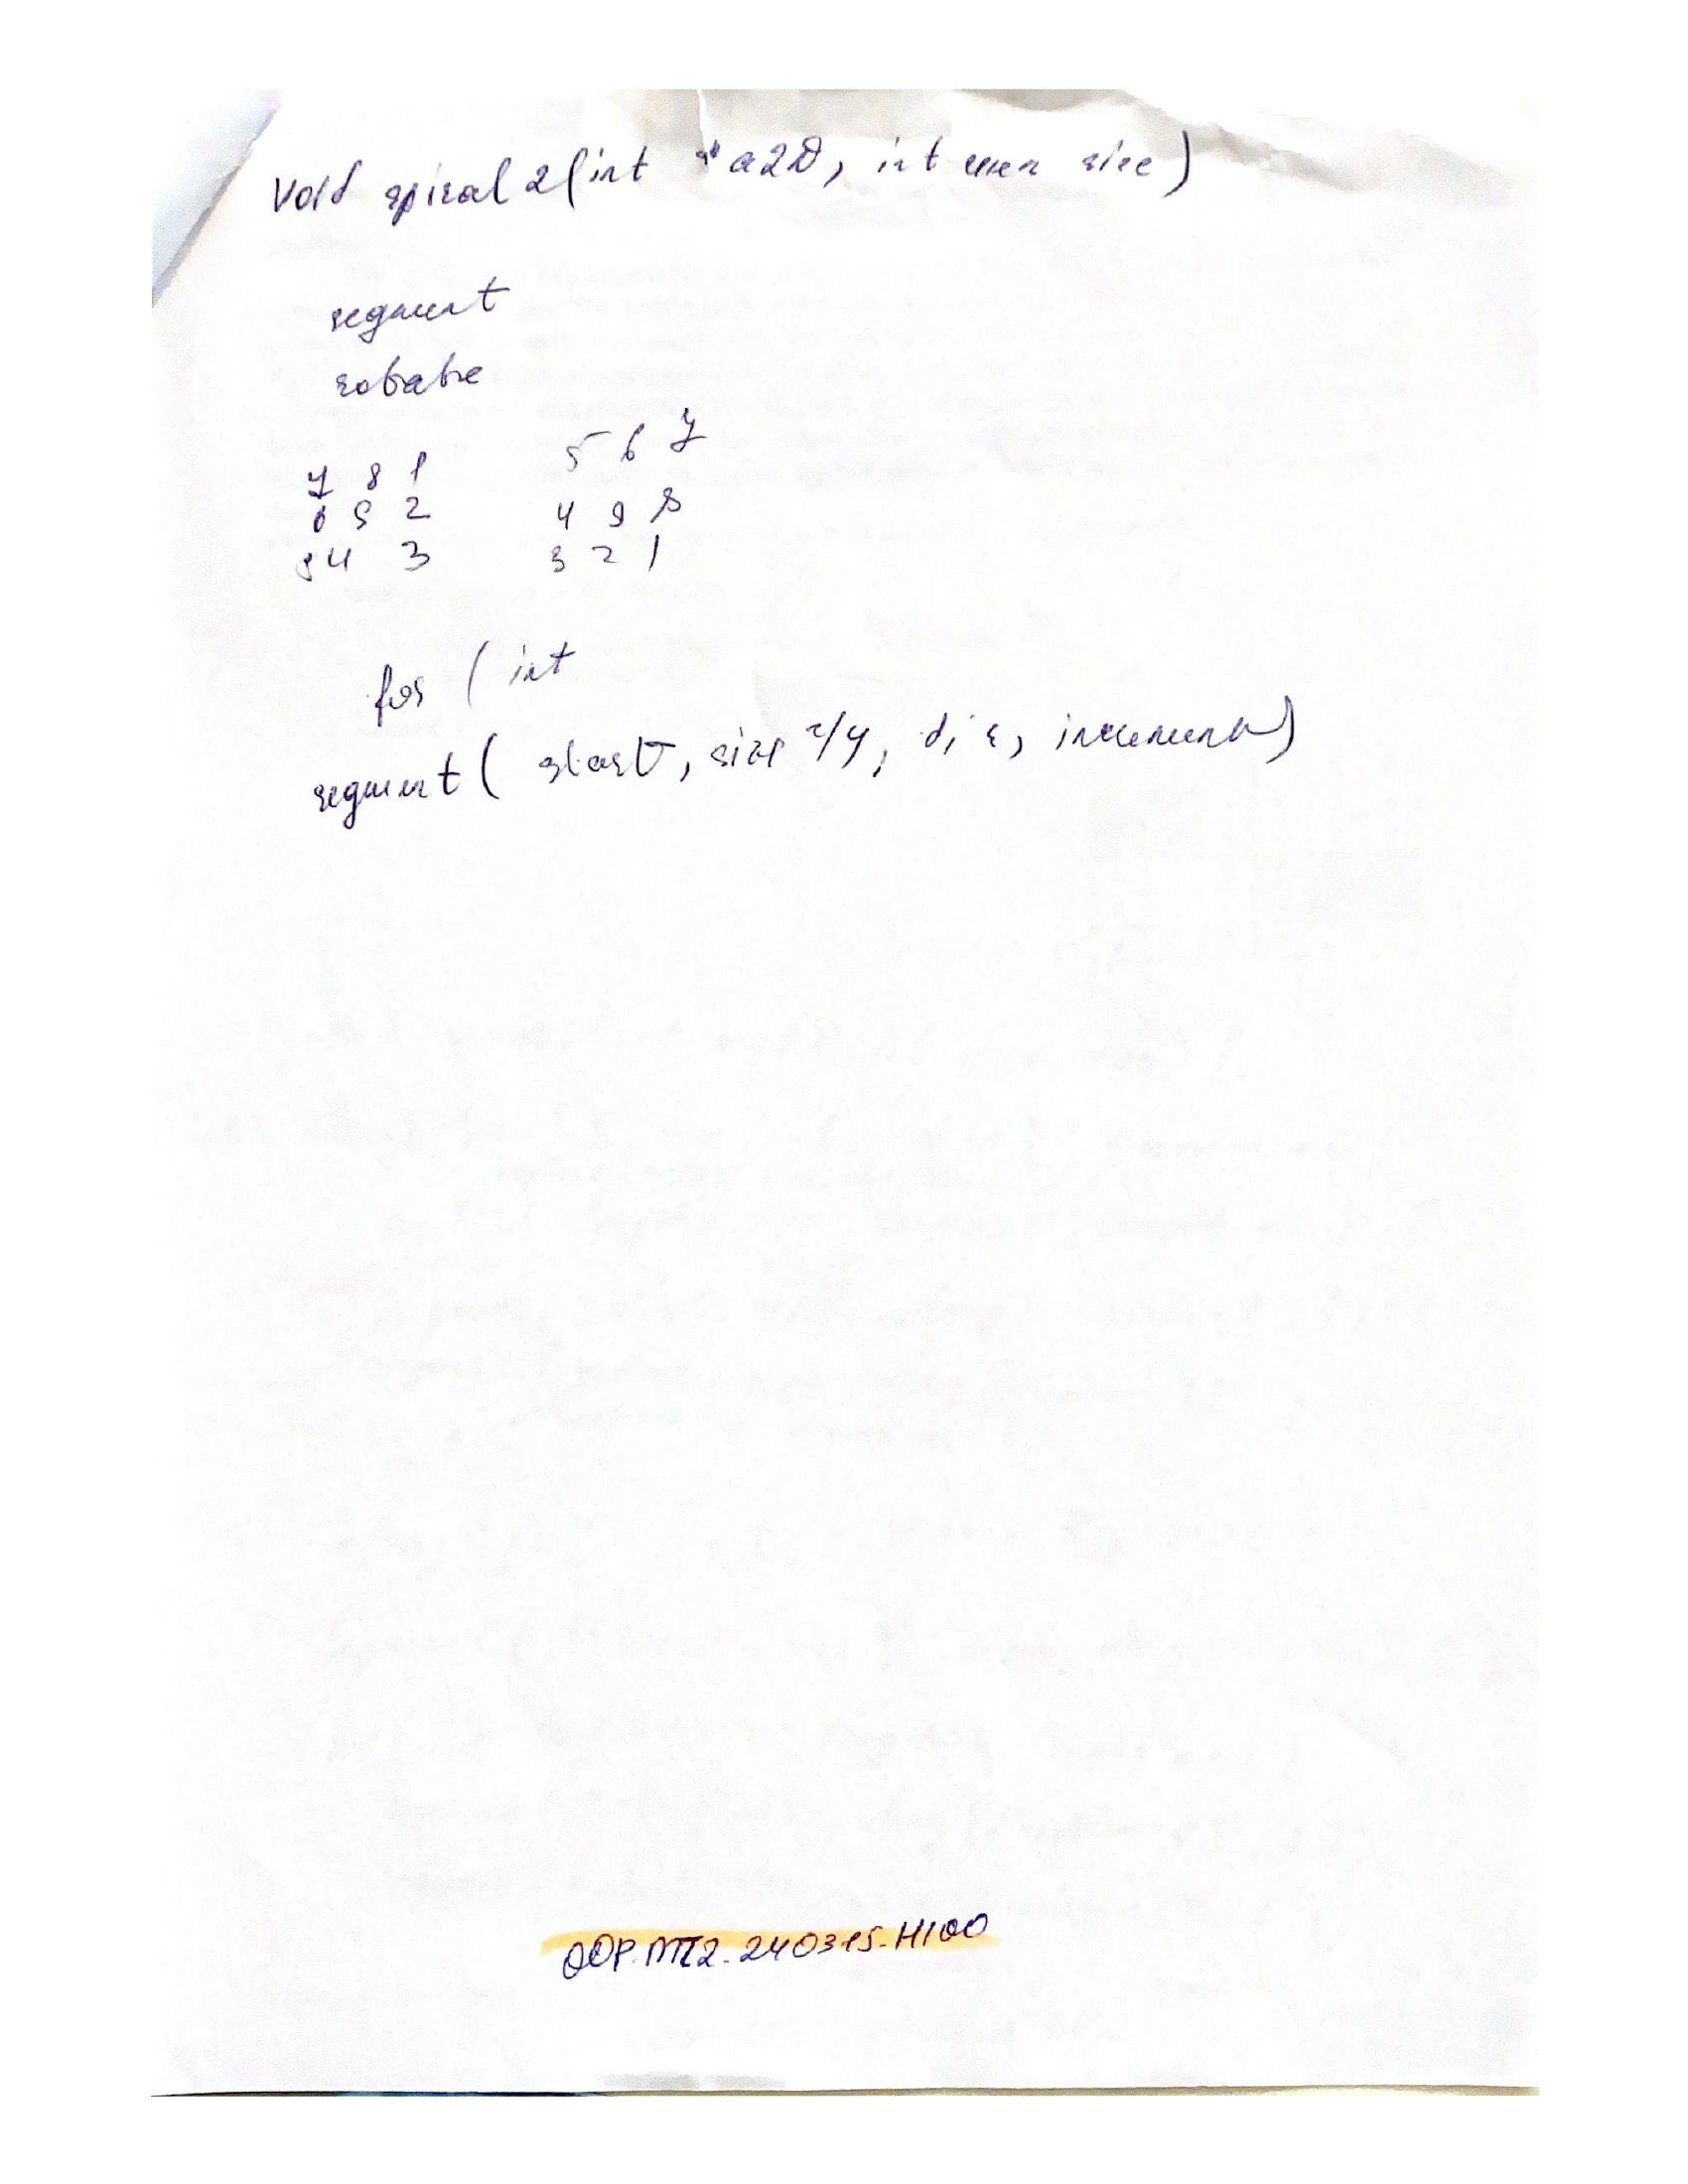 void spiral2(int *a2D, int size)
segment
rotate
7 8 1    5 6 7
6 9 2    4 9 8
5 4 3    3 2 1
for (int
segment( start, size x/y, dir, increment)
OOP.MT2-240315-H100